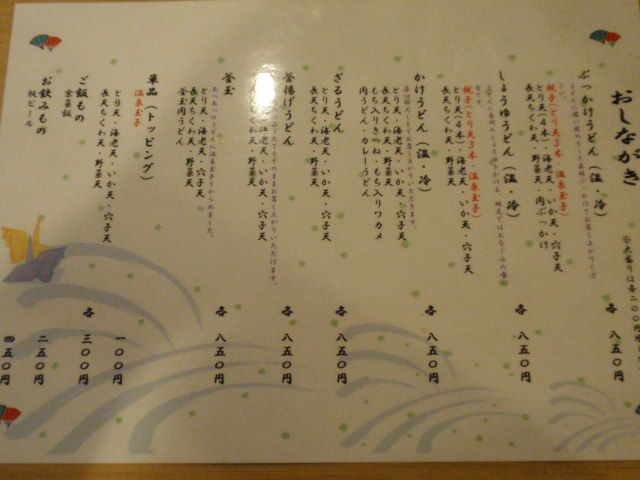 おしながき
ぶっかけうどん(温・冷)
親子(とり天3本・温泉玉子)
とり天(4本)・海老天・いか天・穴子天
長天ちくわ天・野菜天・肉ぶっかけ
各 八五〇円
しょうゆうどん(温・冷)
親子(とり天3本・温泉玉子)
とり天(4本)・海老天・いか天・穴子天
長天ちくわ天・野菜天
各 八五〇円
かけうどん(温・冷)
とり天・海老天・いか天・穴子天
長天ちくわ天・野菜天
もち入りきつね・もち入りワカメ
肉うどん・カレーうどん
各 八五〇円
ざるうどん
とり天・海老天・いか天・穴子天
長天ちくわ天・野菜天
各 八五〇円
釜揚げうどん
海老天・いか天・穴子天
長天ちくわ天・野菜天
各 八五〇円
釜玉
とり天・海老天・穴子天
長天ちくわ天・野菜天
釜玉肉うどん
各 八五〇円
単品(トッピング)
温泉玉子
一〇〇円
とり天・海老天・いか天・穴子天
長天ちくわ天・野菜天
各 三〇〇円
ご飯もの
京菜飯
二五〇円
お飲みもの
瓶ビール
四五〇円